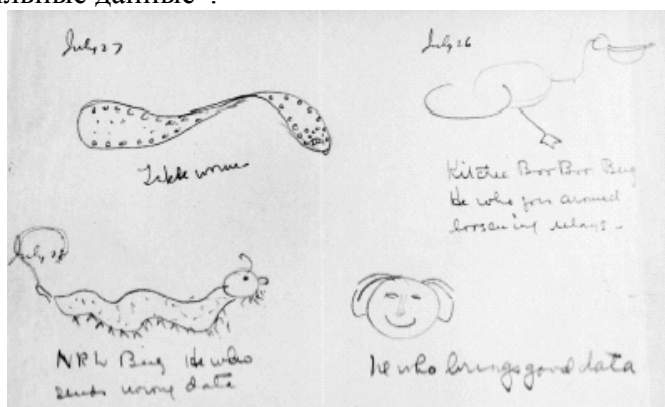 льные данные".
July 27
Table worm
July 26
Kitchie Boo Boo Bug
He who goes around
loosening relays -
July 28
NRL Bug He who
sends wrong data
he who brings good data